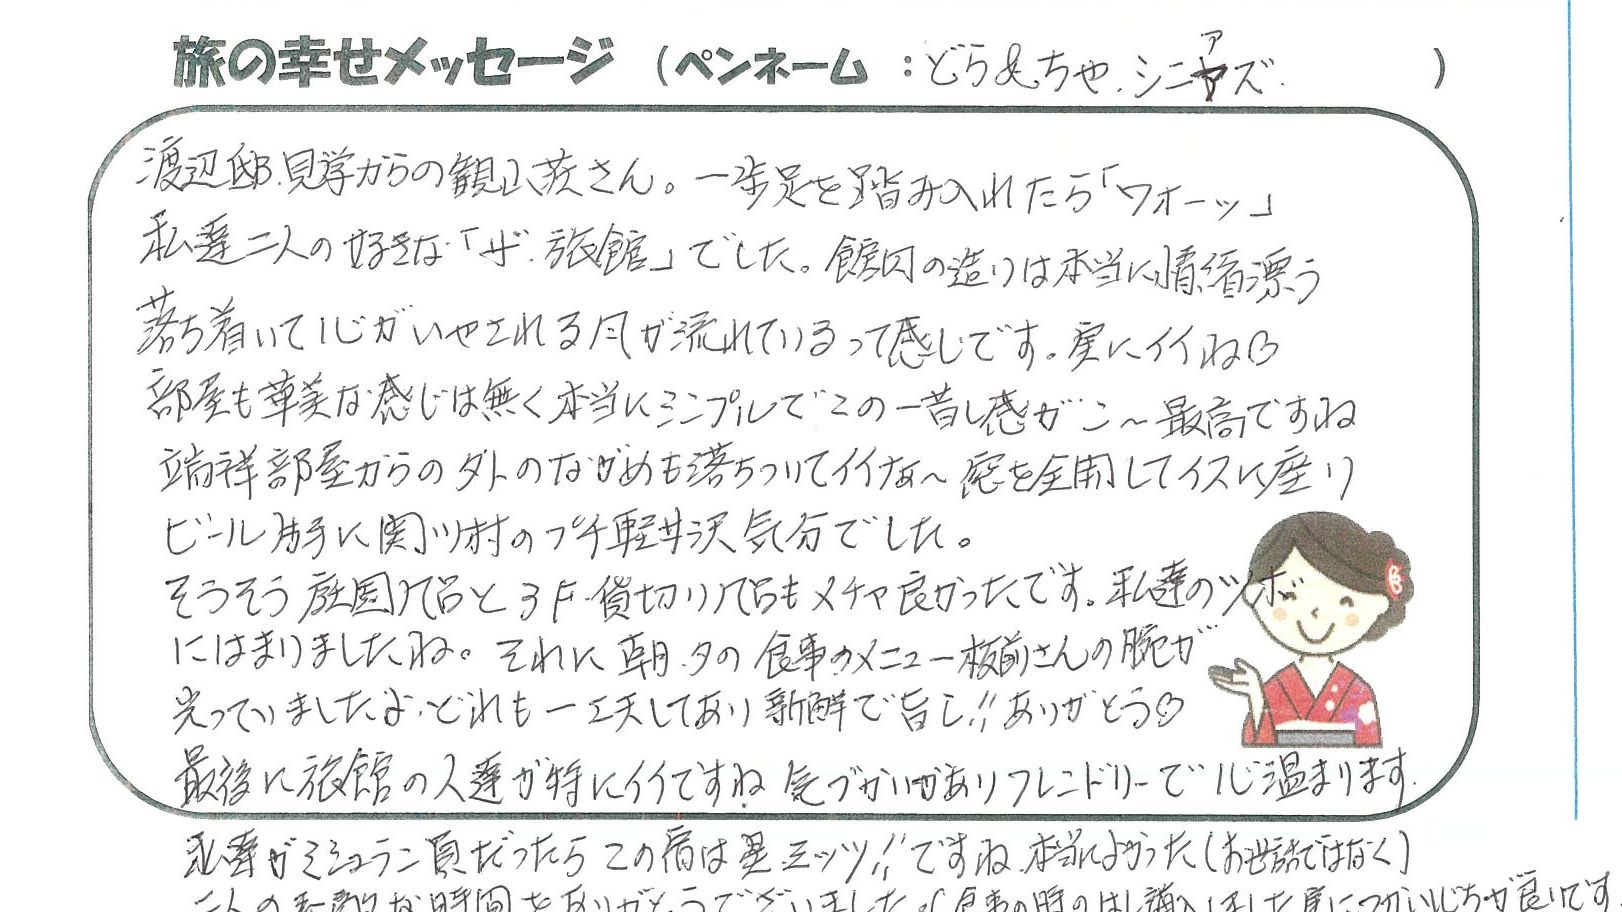 旅の幸せメッセージ (ペンネーム : どら&ちゃ.シニアズ. )
渡辺邸.見学からの観山荘さん。一歩足を踏み入れたら「ワオーッ」
私達二人の好きな「ザ.旅館」でした。館内の造りは本当に情緒漂う
落ち着いて心がいやされる風が流れているって感じです。実にイイね♡
部屋も華美な感じは無く本当にシンプルでこの一昔し感がこ〜最高ですね
端祥部屋からの外のながめも落ちついてイイなぁ〜窓を全開してイスに座り
ビール片手に関川村のプチ軽井沢気分でした。
そうそう庭園風呂と3F.貸切り風呂もメチャ良かったです。私達のツボ
にはまりましたね。それに朝.夕の食事のメニュー板前さんの腕が
光っていましたよ.どれも一工夫してあり新鮮で旨し!!ありがとう♡
最後に旅館の人達が特にイイですね気づかいがありフレンドリーで心温まります.
私達がミシュラン員だったらこの宿は星三ッツ!!ですね.本当によかった(お世話ではなく)
二人の素敵な時間をありがとうございました。(食事の時のはし購入しました実につかいごこちが良いです